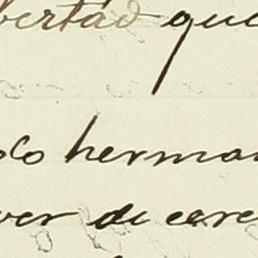 bertad que
co herman
ver de cere